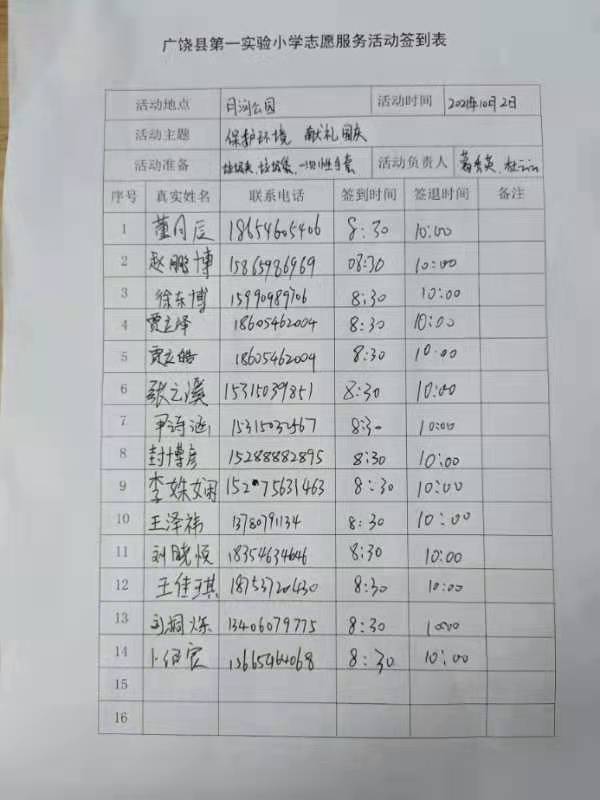 广饶县第一实验小学志愿服务活动签到表
活动地点 月河公园 活动时间 2021年10月2日
活动主题 保护环境 献礼国庆
活动准备 垃圾夹、垃圾袋、一次性手套 活动负责人
序号 真实姓名 联系电话 签到时间 签退时间 备注
1 董月辰 18654605406 8:30 10:00
2 赵鹏博 15865986969 08:30 10:00
3 徐东博 15990989706 8:30 10:00
4 贾立泽 18605462004 8:30 10:00
5 18605462004 8:30 10:00
6 张立溪 15315039851 8:30 10:00
7 尹诗涵 8:30 10:00
8 封博彦 15288882895 8:30 10:00
9 李姝娴 8:30 10:00
10 王泽祎 13780791134 8:30 10:00
11 刘晓悦 18354634646 8:30 10:00
12 王佳琪 18753720430 8:30 10:00
13 13406079775 8:30 1000
14 13665464068 8:30 10:00
15
16